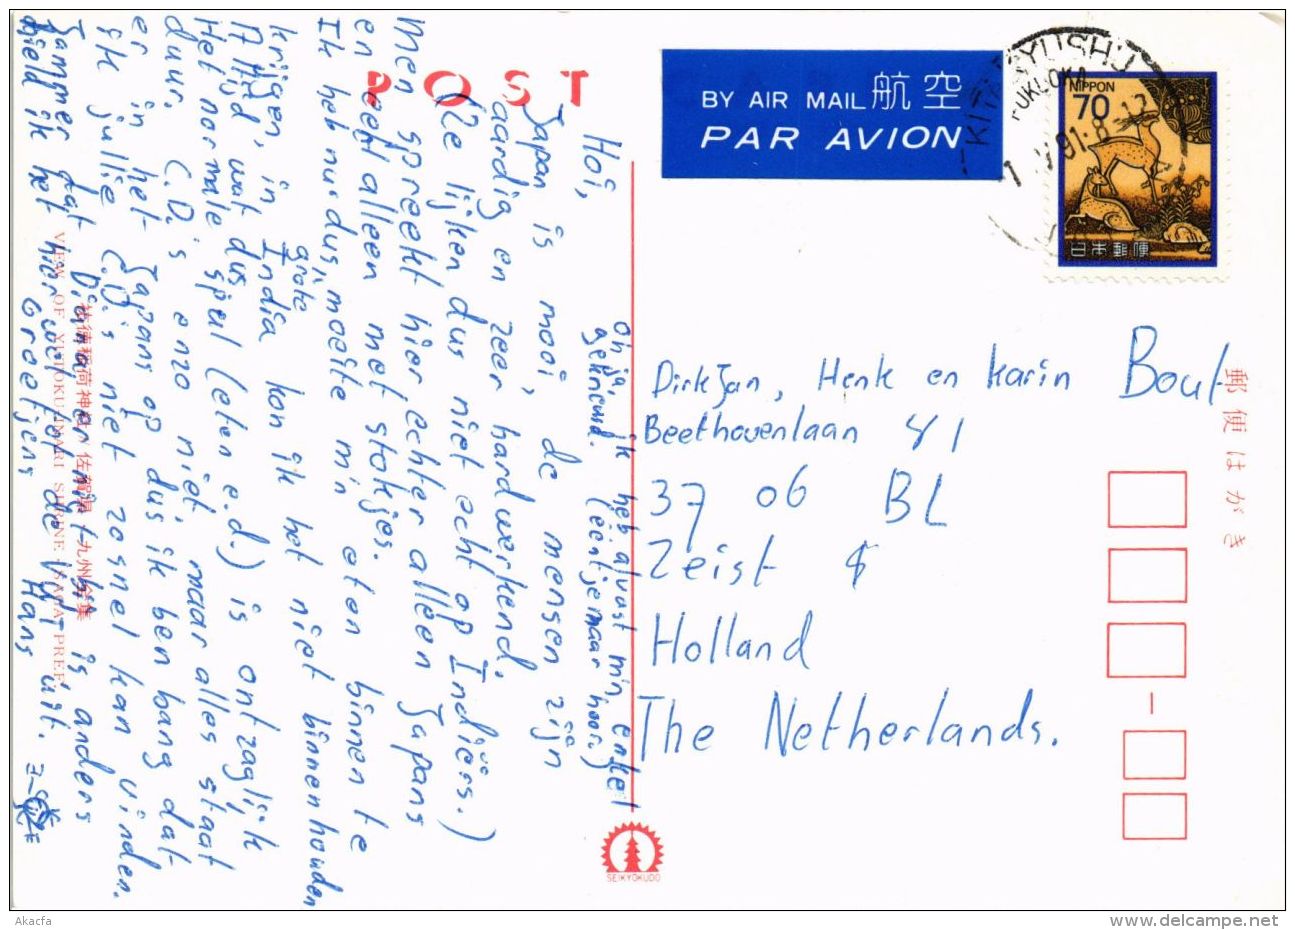 POST
BY AIR MAIL 航空
PAR AVION
KITAKYUSHU
FUKUOKA
NIPPON
70
日本郵便
Hoi,
Japan is mooi, de mensen zijn
aardig en zeer hardwerkend.
(Ze lijken dus niet echt op Indiërs.)
Men spreekt hier echter alleen Japans
en eet alleen met stokjes.
Ik heb nu dus moeite m'n eten binnen te
krijgen, in India kon ik het niet binnenhouden
grote
Altijd wat dus.
Het normale spul (eten e.d.) is ontzaglijk
duur, C.D.'s enzo niet maar alles staat
er in het Japans op dus ik ben bang dat
ik jullie C.D.'s niet zo snel kan vinden.
Jammer dat Diana er niet bij is, anders
hield ik het hier wel tot de VUT uit.
Greetjens
Hans
oh ja, ik heb alvast m'n enkel
gekneusd. (eentje maar hoor)
DirkJan, Henk en Karin Bout
Beethovenlaan 41
3706 BL
Zeist
Holland
The Netherlands.
郵便はがき
VIEW OF YUTOKU INARI SHRINE, SAGA PREF.
SEIKYOKUDO
Akacfa
www.delcampe.net